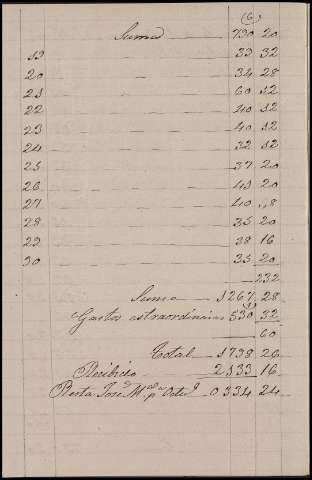 (6)
Suma 790 20
19 39 32
20 34 28
21 60 12
22 40 12
23 40 12
24 32 12
25 37 20
26 43 20
27 40 ,,8
28 35 20
29 38 16
30 35 20
232
Suma 1267 28
Gastos estraordinarios 530 32
60
Total 1798 26
Recibido 2133 16
Resta José M.ª p.ª Octe 0334 24